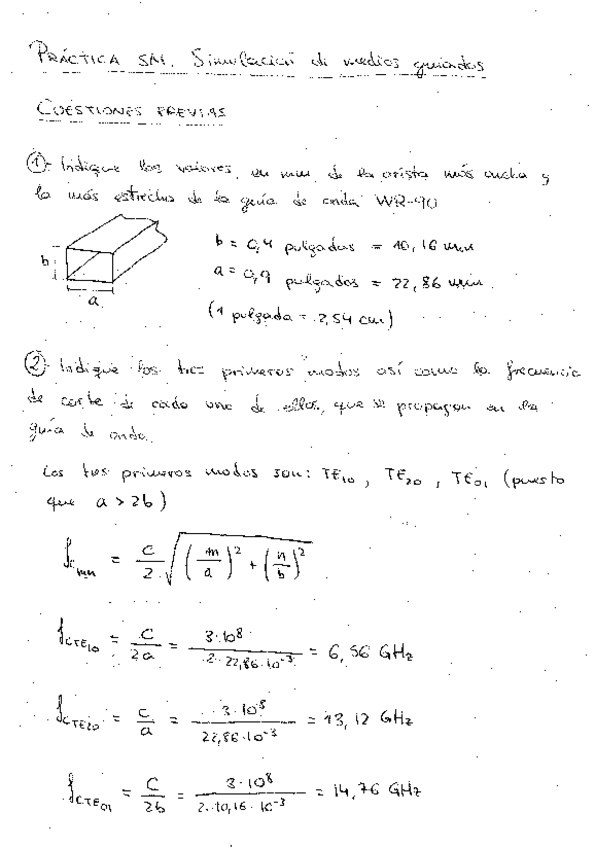 PRÁCTICA SM. Simulación de medios guiados
CUESTIONES PREVIAS
①- Indique los valores, en mm, de la arista más ancha y
la más estrecha de la guía de onda WR-90
b = 0,4 pulgadas = 10,16 mm
a = 0,9 pulgadas = 22,86 mm
(1 pulgada = 2,54 cm)
b
a
②- Indique los tres primeros modos así como la frecuencia
de corte de cada uno de ellos, que se propagan en la
guía de onda.
Los tres primeros modos son: TE₁₀, TE₂₀, TE₀₁ (puesto
que a > 2b)
f_cmn = C/2 √((m/a)² + (n/b)²)
f_CTE₁₀ = C/2a = 3·10⁸/2·22,86·10⁻³ = 6,56 GHz
f_CTE₂₀ = C/a = 3·10⁸/22,86·10⁻³ = 13,12 GHz
f_CTE₀₁ = C/2b = 3·10⁸/2·10,16·10⁻³ = 14,76 GHz